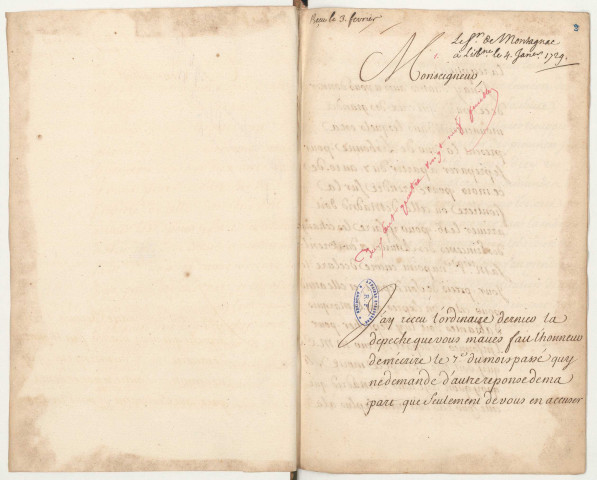 Reçu le 3. fevrier
3
Le Sr. de Montagnac
à Lisbne. le 4. Janer. 1729.
Monseigneur
J'ay receu l'ordinaire dernier la
depeche que vous m'aués fait l'honneur
de m'ecrire le 7e. du mois passé quy
ne demande d'autre reponse de ma
part que seulement de vous en accuser